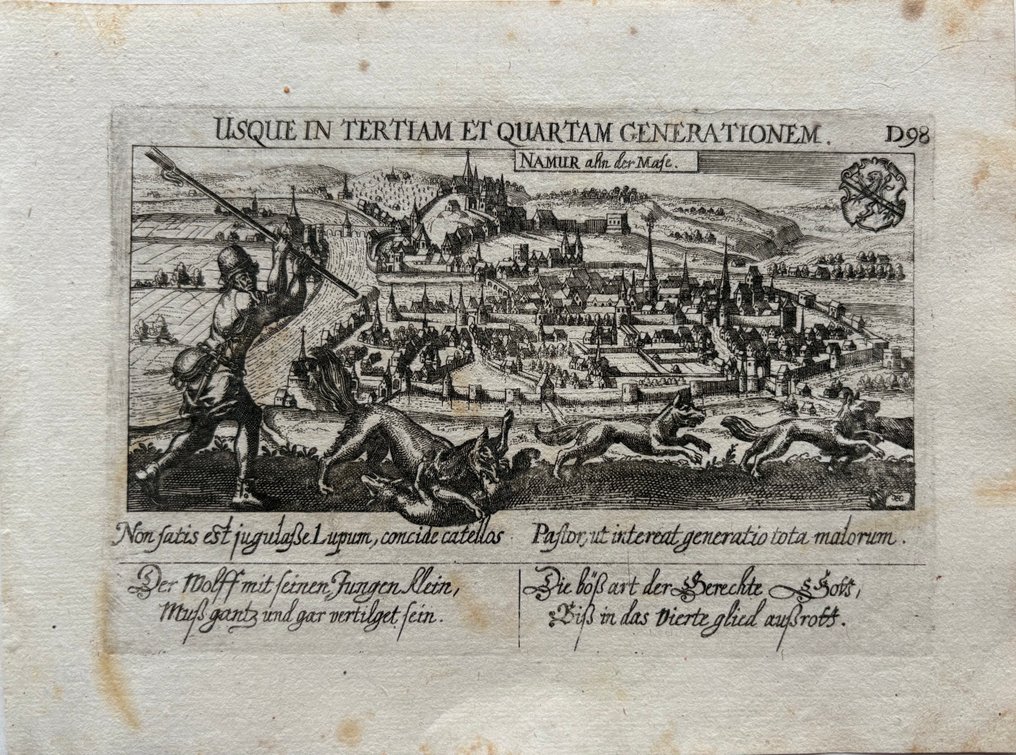 USQUE IN TERTIAM ET QUARTAM GENERATIONEM. D98
NAMUR ahn der Mase.
Non satis est jugulaße Lupum, concide catellos Pastor, ut intereat generatio tota malorum.
Der Wolff mit seinen Jungen klein,
Muß gantz und gar vertilget sein.
Die böß art der Gerechte Gott,
Biß in das vierte glied außrott.